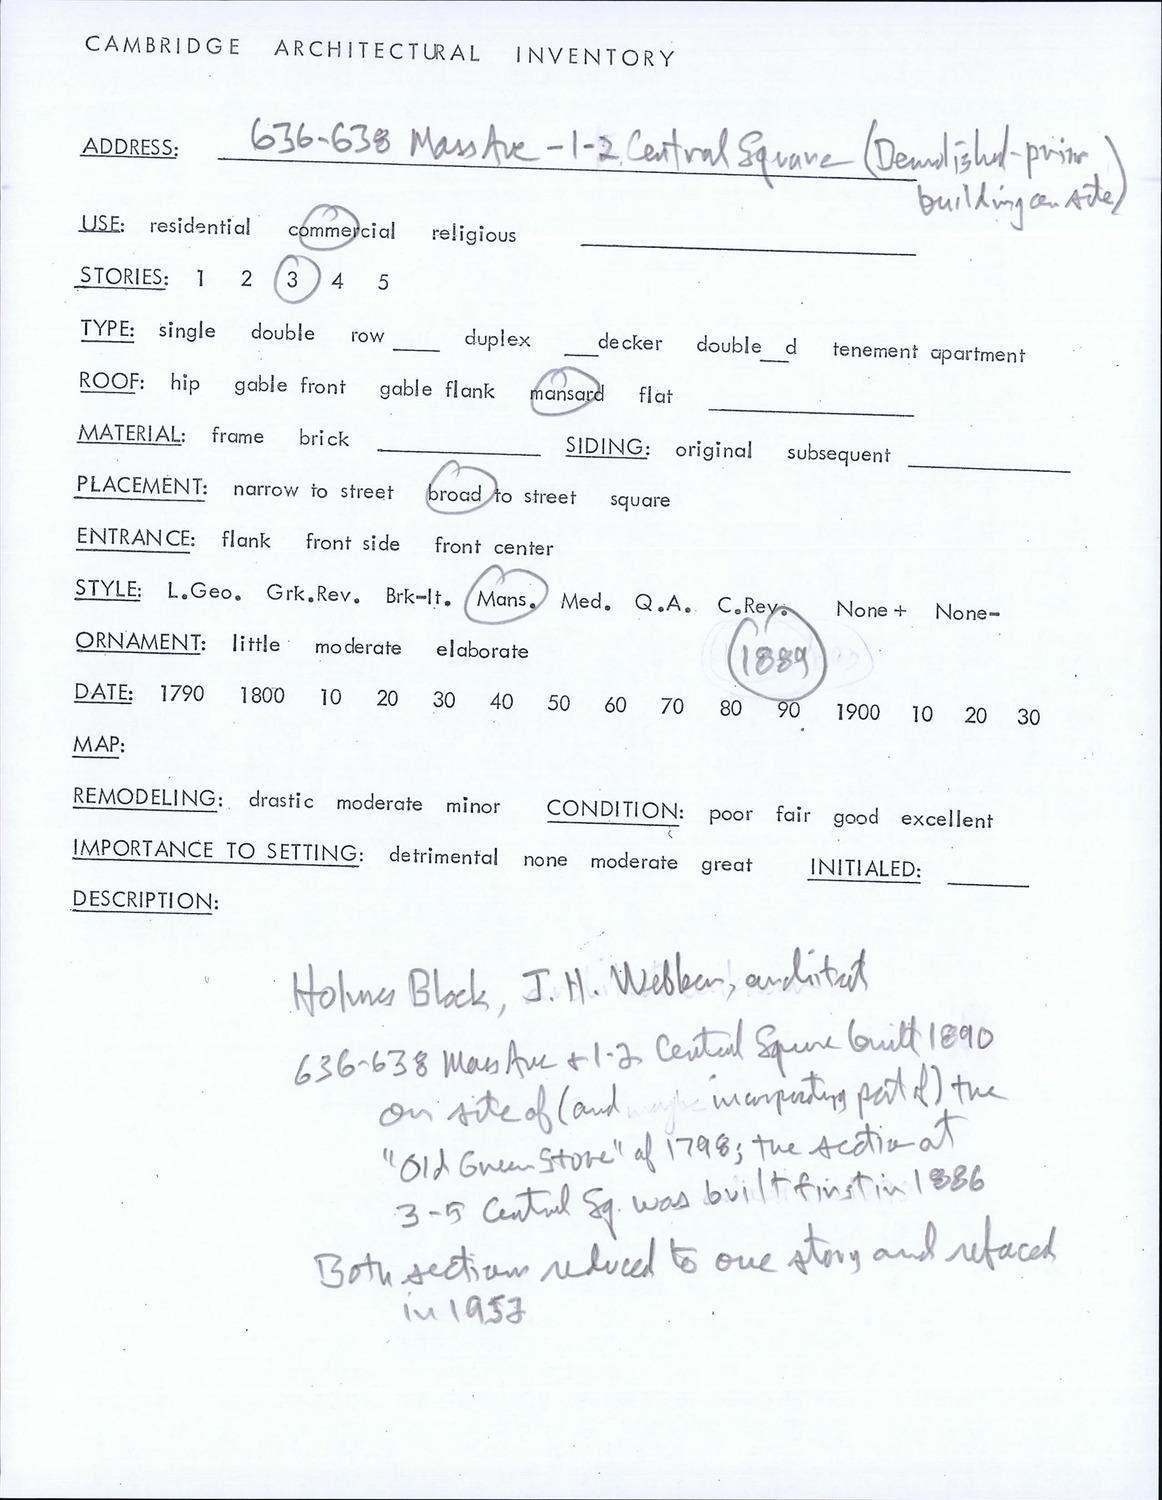 CAMBRIDGE ARCHITECTURAL INVENTORY
ADDRESS: 636-638 Mass Ave - 1-2 Central Square (Demolished - prior
building on site)
USE: residential commercial religious
STORIES: 1 2 3 4 5
TYPE: single double row ____ duplex ___decker double___d tenement apartment
ROOF: hip gable front gable flank mansard flat
MATERIAL: frame brick SIDING: original subsequent
PLACEMENT: narrow to street broad to street square
ENTRANCE: flank front side front center
STYLE: L.Geo. Grk.Rev. Brk-It. Mans. Med. Q.A. C.Rev. None+ None-
ORNAMENT: little moderate elaborate 1889
DATE: 1790 1800 10 20 30 40 50 60 70 80 90 1900 10 20 30
MAP:
REMODELING: drastic moderate minor CONDITION: poor fair good excellent
IMPORTANCE TO SETTING: detrimental none moderate great INITIALED:
DESCRIPTION:
Holmes Block, J. H. architect
636-638 Mass Ave + 1-2 Central Square built 1890
on site of (and maybe incorporating part of) the
"Old Green Store" of 1798; the section at
3-5 Central Sq. was built first in 1886
Both sections reduced to one story and refaced
in